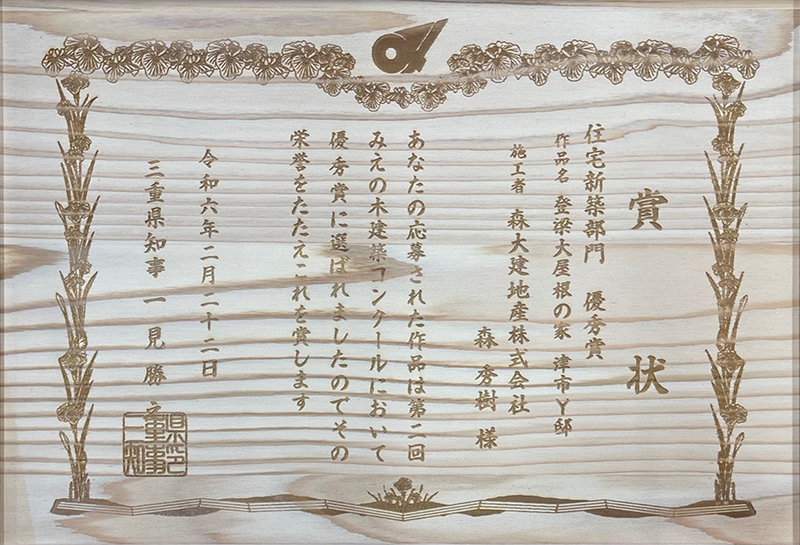 賞状
住宅新築部門 優秀賞
作品名 登梁大屋根の家 津市Y邸
施工者 森大建地産株式会社
森秀樹 様
あなたの応募された作品は第二回
みえの木建築コンクールにおいて
優秀賞に選ばれましたのでその
栄誉をたたえこれを賞します
令和六年二月二十二日
三重県知事 一見勝之